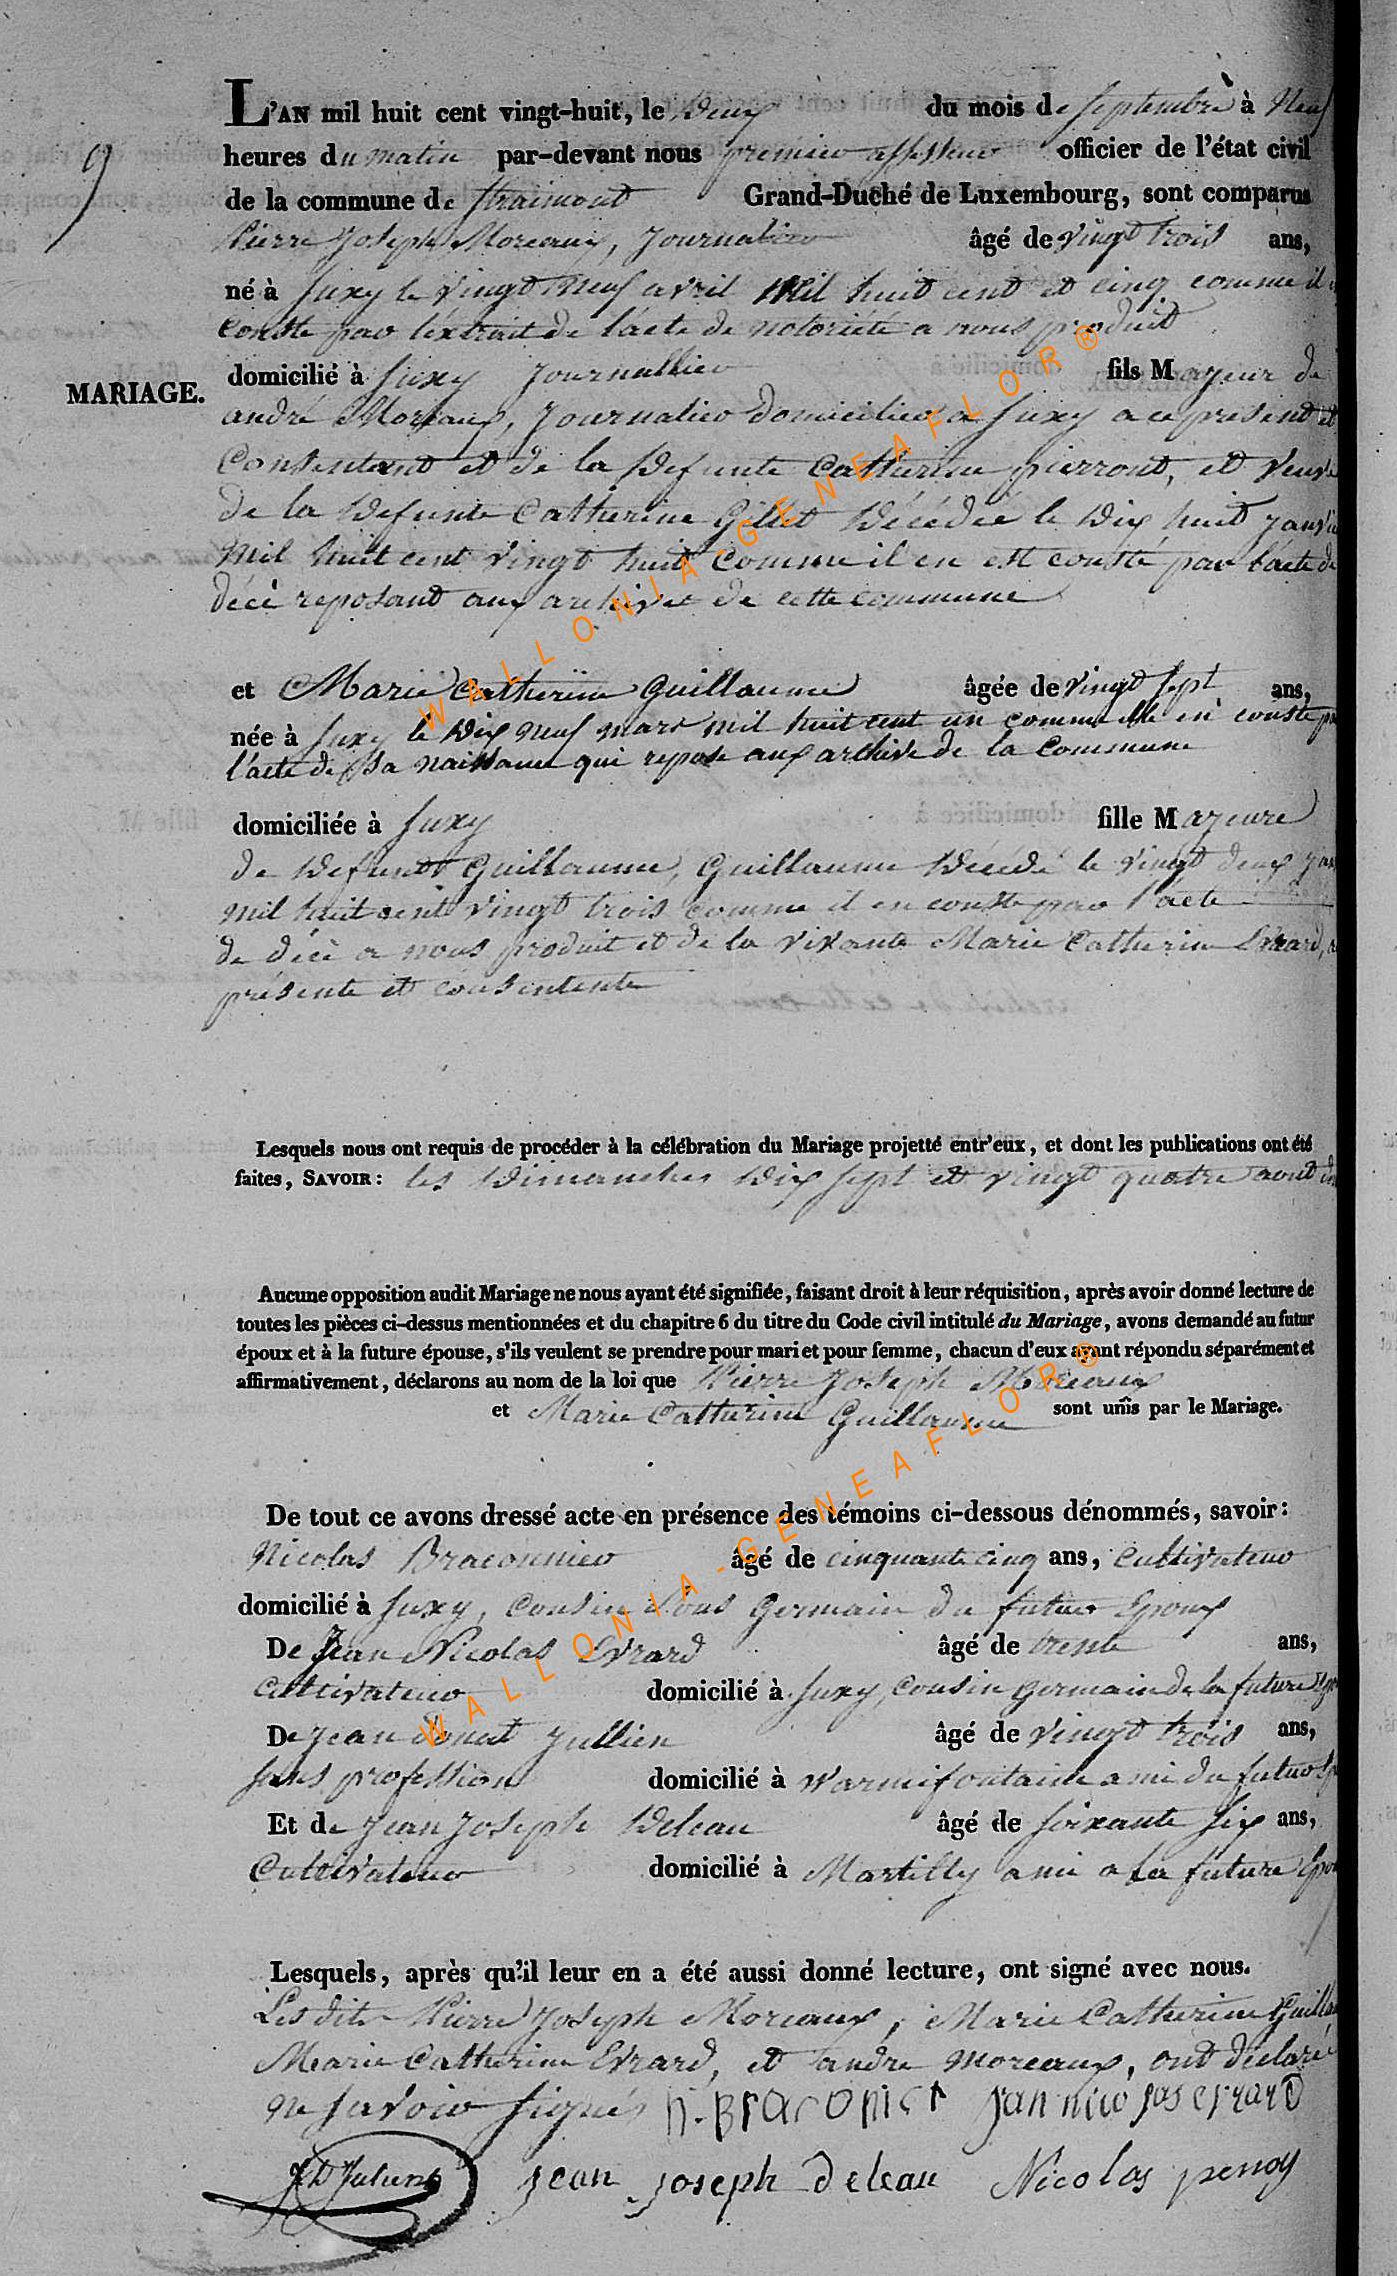 L'AN mil huit cent vingt-huit, le deux du mois de septembre à Neuf
heures du matin par-devant nous premier assesseur officier de l'état civil
de la commune de straimont Grand-Duché de Luxembourg, sont comparus
Pierre Joseph Moreaux, Journalier âgé de vingt trois ans,
né à Suxy le vingt neuf avril mil huit cent et cinq comme il
conste par l'extrait de l'acte de notoriété a nous produit
MARIAGE.
domicilié à Suxy Journallier fils Mayeur de
andré Moreaux, Journalier domicilier a Suxy a ce present et
Consentant et de la defunte Catherine pierront, et veuve
de la defunte Catherine Gillet décédée le dix huit janvier
mil huit cent vingt huit comme il en est consté par l'acte de
décè reposant aux archives de cette commune
9
et Marie Catherine Guillaume âgée de vingt sept ans,
née à Suxy le dix neuf mars mil huit cent un comme elle en conste par
l'acte de sa naissance qui repose aux archive de la Commune
domiciliée à Suxy fille Mayeure
de defunt Guillaume, Guillaume décédé le vingt deux
mil huit cent vingt trois comme il en conste par l'acte
de décè a nous produit et de la vivante Marie Catherine Evrard,
présente et consentente
Lesquels nous ont requis de procéder à la célébration du Mariage projetté entr'eux, et dont les publications ont été
faites, SAVOIR: les dimanches dix sept et vingt quatre aout
Aucune opposition audit Mariage ne nous ayant été signifiée, faisant droit à leur réquisition, après avoir donné lecture de
toutes les pièces ci-dessus mentionnées et du chapitre 6 du titre du Code civil intitulé du Mariage, avons demandé au futur
époux et à la future épouse, s'ils veulent se prendre pour mari et pour femme, chacun d'eux ayant répondu séparément et
affirmativement, déclarons au nom de la loi que Pierre Joseph Moreaux
et Marie Catherine Guillaume sont unis par le Mariage.
De tout ce avons dressé acte en présence des témoins ci-dessous dénommés, savoir:
Nicolas Braconnier âgé de cinquante cinq ans, cultivateur
domicilié à Suxy, Cousin sous Germain du futur Epoux
De Jean Nicolas Evrard âgé de trente ans,
cultivateur domicilié à Suxy, Cousin germain de la future
De Jean donat Jullien âgé de vingt trois ans,
sans profession domicilié à warmifontaine ami du futur
Et de Jean Joseph deleau âgé de soixante six ans,
Cultivateur domicilié à Martilly ami a la future
Lesquels, après qu'il leur en a été aussi donné lecture, ont signé avec nous.
Les dits Pierre Joseph Moreaux, Marie Catherine Guillaume
Marie Catherine Evrard, et andre moreaux, ont déclaré
ne savoir signés n. Braconier Jan nicolas evrard
JD Juliens jean joseph deleau Nicolas penoy
WALLONIA-GENEAFLOR®
WALLONIA-GENEAFLOR®